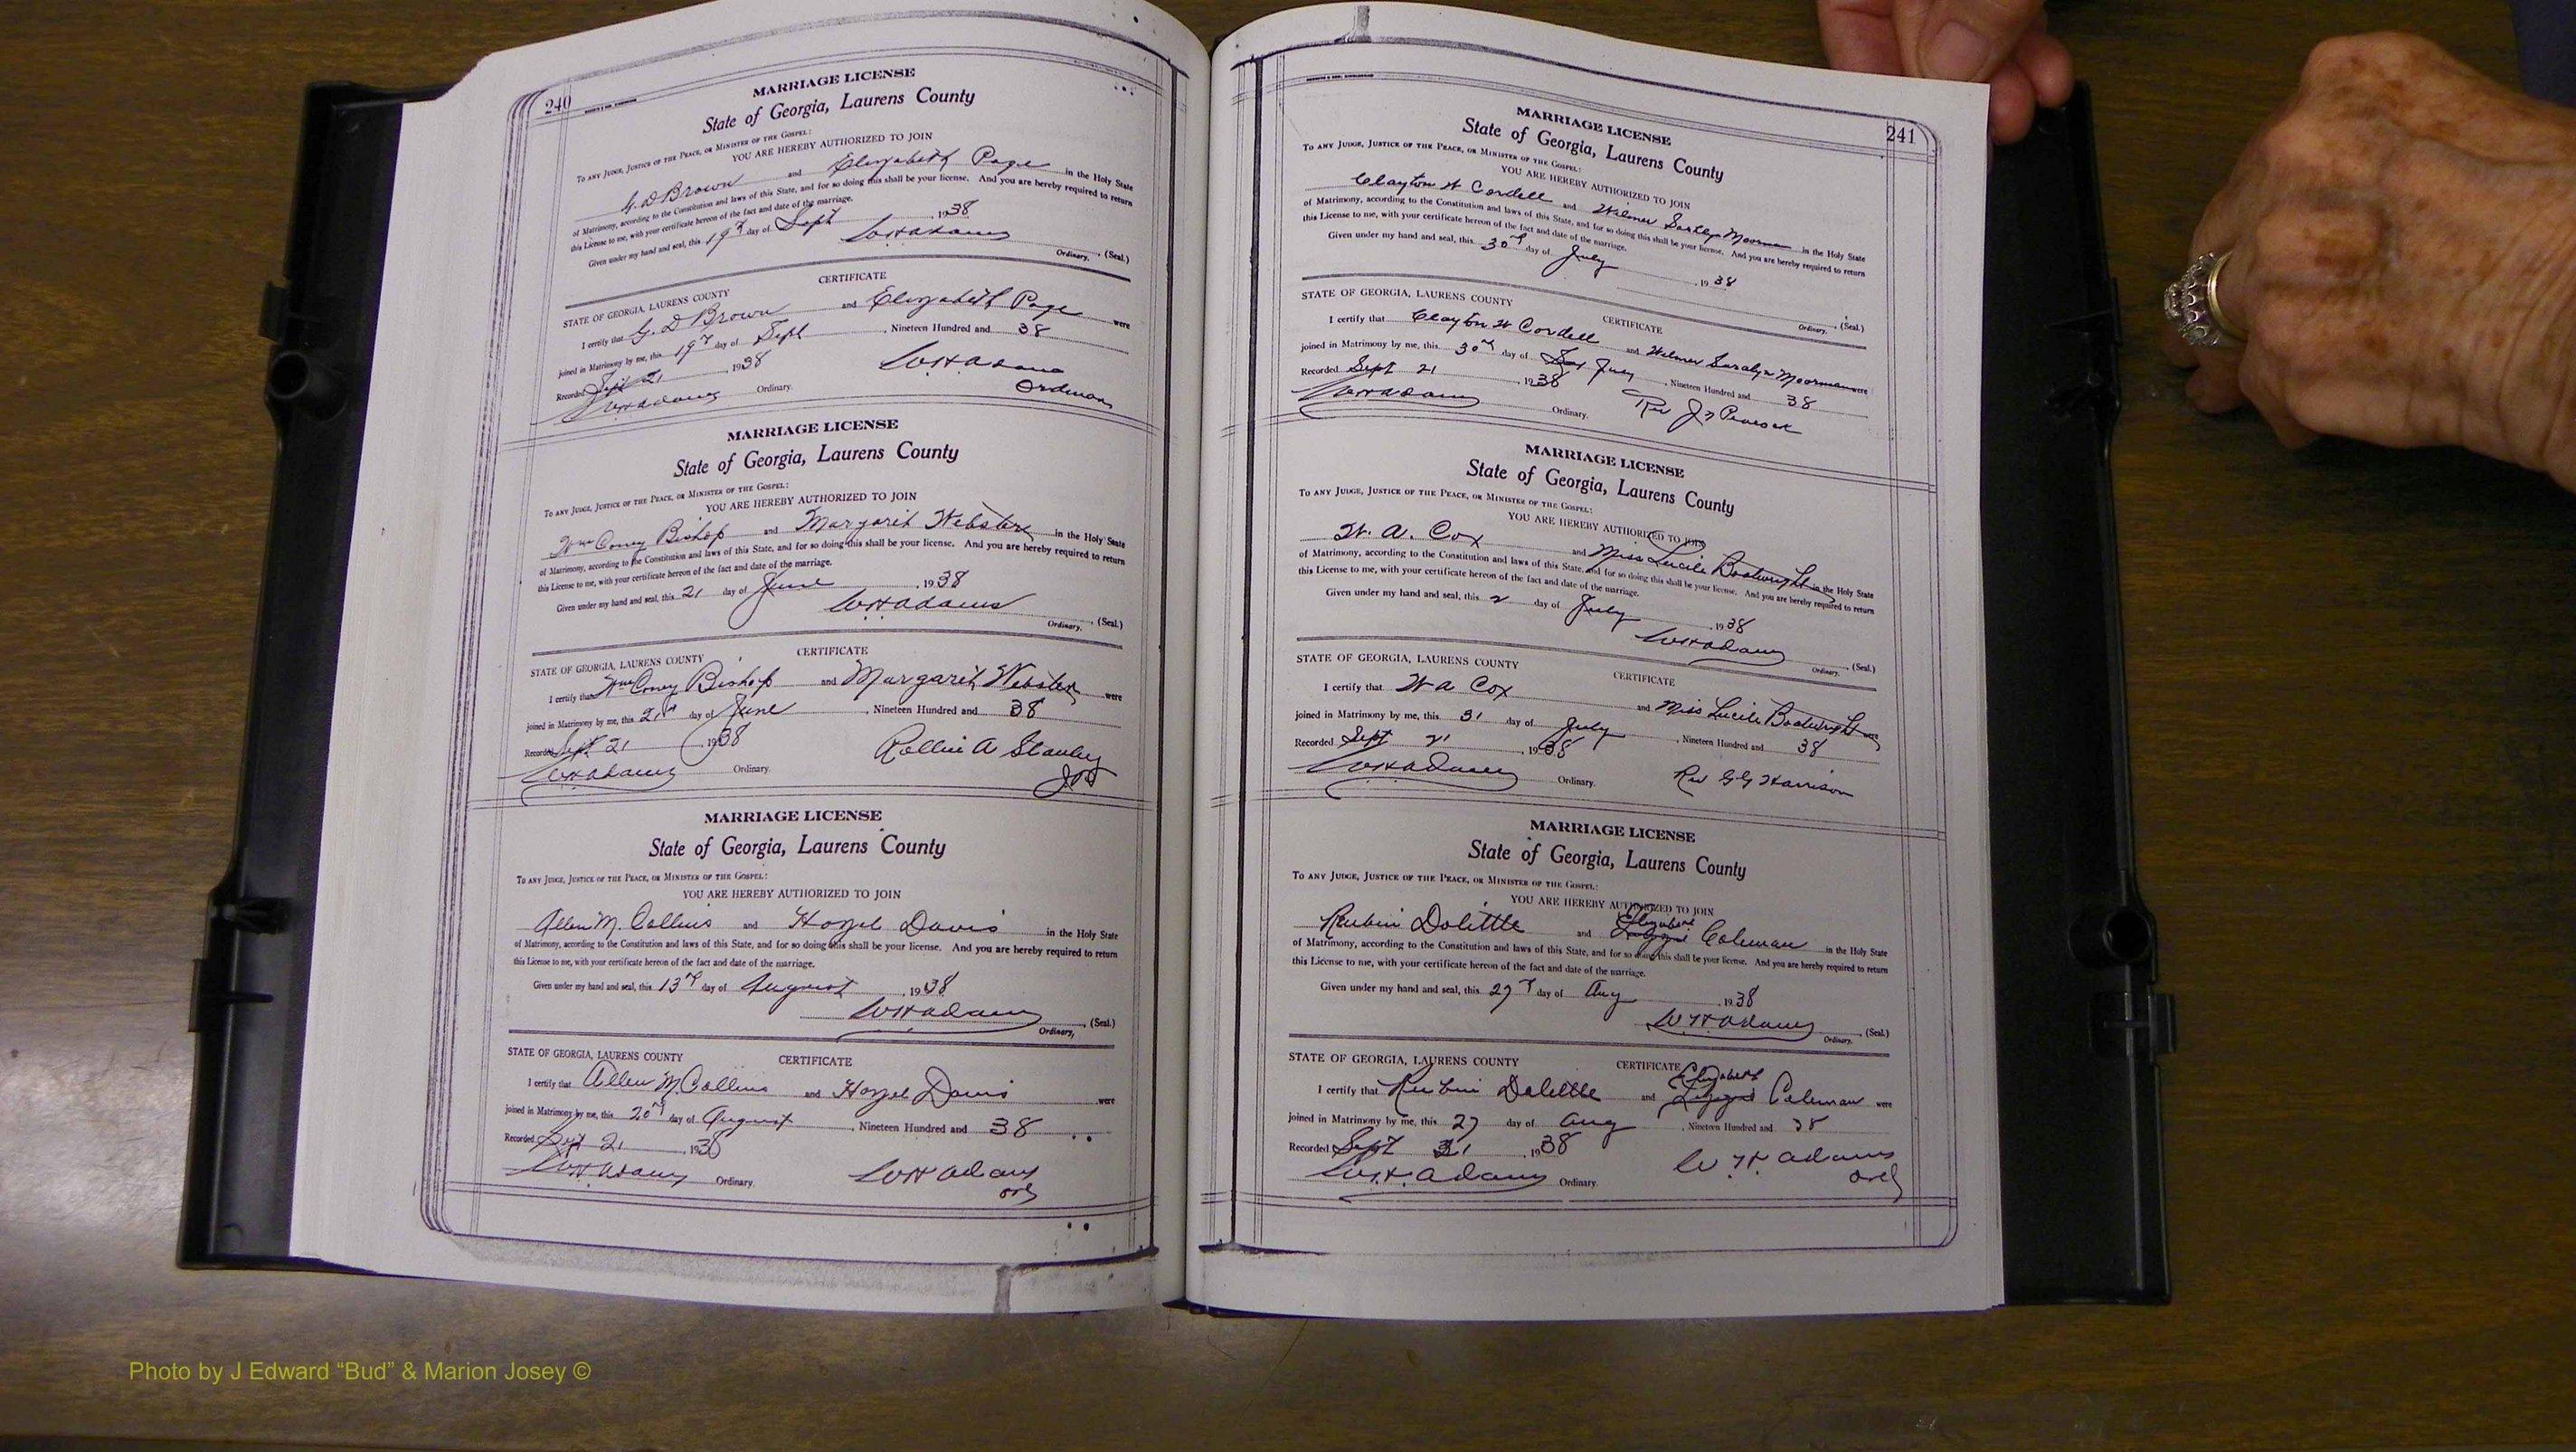 240
MARRIAGE LICENSE
State of Georgia, Laurens County
To any Judge, Justice of the Peace, or Minister of the Gospel:
YOU ARE HEREBY AUTHORIZED TO JOIN
G. D Brown and Elizabeth Page in the Holy State
of Matrimony, according to the Constitution and laws of this State, and for so doing this shall be your license. And you are hereby required to return
this License to me, with your certificate hereon of the fact and date of the marriage.
Given under my hand and seal, this 19th day of Sept 1938
W H Adams
Ordinary. (Seal.)
CERTIFICATE
STATE OF GEORGIA, LAURENS COUNTY
I certify that G. D Brown and Elizabeth Page were
joined in Matrimony by me, this 19th day of Sept, Nineteen Hundred and 38
Recorded Sept 21, 1938 W. H. Adams
W H Adams Ordinary. Ordinary
MARRIAGE LICENSE
State of Georgia, Laurens County
To any Judge, Justice of the Peace, or Minister of the Gospel:
YOU ARE HEREBY AUTHORIZED TO JOIN
Wm Coney Bishop and Margarit Webster in the Holy State
of Matrimony, according to the Constitution and laws of this State, and for so doing this shall be your license. And you are hereby required to return
this License to me, with your certificate hereon of the fact and date of the marriage.
Given under my hand and seal, this 21 day of June, 1938
W H Adams
Ordinary. (Seal.)
CERTIFICATE
STATE OF GEORGIA, LAURENS COUNTY
I certify that Wm Coney Bishop and Margarit Webster were
joined in Matrimony by me, this 21st day of June, Nineteen Hundred and 38
Recorded Sept. 21, 1938 Rollin A Stanley
W H Adams Ordinary. J P
MARRIAGE LICENSE
State of Georgia, Laurens County
To any Judge, Justice of the Peace, or Minister of the Gospel:
YOU ARE HEREBY AUTHORIZED TO JOIN
Allen M. Collins and Hazel Davis in the Holy State
of Matrimony, according to the Constitution and laws of this State, and for so doing this shall be your license. And you are hereby required to return
this License to me, with your certificate hereon of the fact and date of the marriage.
Given under my hand and seal, this 13th day of August, 1938
W H Adams
Ordinary, (Seal.)
STATE OF GEORGIA, LAURENS COUNTY CERTIFICATE
I certify that Allen M. Collins and Hazel Davis were
joined in Matrimony by me, this 20th day of August, Nineteen Hundred and 38
Recorded Sept 21 1938
W. H. Adams Ordinary. W H Adams
Ord
241
MARRIAGE LICENSE
State of Georgia, Laurens County
To any Judge, Justice of the Peace, or Minister of the Gospel:
YOU ARE HEREBY AUTHORIZED TO JOIN
Clayton H Cordell and Wilmer Moorman in the Holy State
of Matrimony, according to the Constitution and laws of this State, and for so doing this shall be your license. And you are hereby required to return
this License to me, with your certificate hereon of the fact and date of the marriage.
Given under my hand and seal, this 30th day of July, 1938
Ordinary. (Seal.)
STATE OF GEORGIA, LAURENS COUNTY
CERTIFICATE
I certify that Clayton H Cordell and Wilmer Moorman were
joined in Matrimony by me, this 30th day of July, Nineteen Hundred and 38
Recorded Sept 21, 1938 Rev J Peacock
W H Adams Ordinary.
MARRIAGE LICENSE
State of Georgia, Laurens County
To any Judge, Justice of the Peace, or Minister of the Gospel:
YOU ARE HEREBY AUTHORIZED TO JOIN
W. A. Cox and Miss Lucile Boatwright in the Holy State
of Matrimony, according to the Constitution and laws of this State, and for so doing this shall be your license. And you are hereby required to return
this License to me, with your certificate hereon of the fact and date of the marriage.
Given under my hand and seal, this 2 day of July, 1938
W H Adams
Ordinary. (Seal.)
STATE OF GEORGIA, LAURENS COUNTY
CERTIFICATE
I certify that W A Cox and Miss Lucile Boatwright were
joined in Matrimony by me, this 31 day of July, Nineteen Hundred and 38
Recorded Sept 21, 1938
W H Adams Ordinary. Rev G G Harrison
MARRIAGE LICENSE
State of Georgia, Laurens County
To any Judge, Justice of the Peace, or Minister of the Gospel:
YOU ARE HEREBY AUTHORIZED TO JOIN
Reubin Dolittle and Elizabeth Coleman in the Holy State
of Matrimony, according to the Constitution and laws of this State, and for so doing this shall be your license. And you are hereby required to return
this License to me, with your certificate hereon of the fact and date of the marriage.
Given under my hand and seal, this 27th day of Aug, 1938
W. H Adams
Ordinary. (Seal.)
STATE OF GEORGIA, LAURENS COUNTY CERTIFICATE
I certify that Reubin Dolittle and Elizabeth Coleman were
joined in Matrimony by me, this 27 day of Aug, Nineteen Hundred and 38
Recorded Sept 21, 1938 W H. Adams
W. H. Adams Ordinary. Ord
Photo by J Edward “Bud” & Marion Josey ©